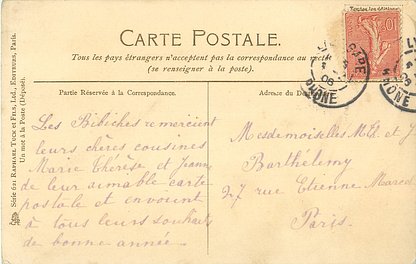 CARTE POSTALE.
Tous les pays étrangers n'acceptent pas la correspondance au recto
(se renseigner à la poste).
Partie Réservée à la Correspondance.
Les Bibiches remercient
leurs chères cousines
Marie Thérèse et Jeanne
de leur aimable carte
postale et envoient
à tous leurs souhaits
de bonne année.
Adresse du
Mesdemoiselles M.T. et J.
Barthélemy
27 rue Etienne Marcel
Paris.
Série 611 Raphael Tuck et Fils, Ltd., Editeurs, Paris.
Un mot à la Poste (Déposé).
10
GARE
06
RHÔNE
06
RHÔNE